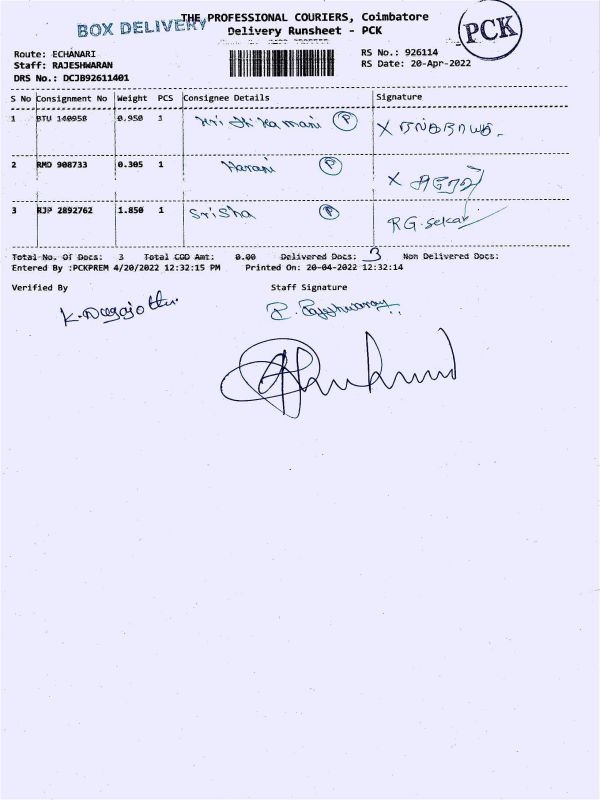 BOX DELIVERY
THE PROFESSIONAL COURIERS, Coimbatore
Delivery Runsheet - PCK
PCK
Route: ECHANARI
Staff: RAJESHWARAN
DRS No.: DCJB92611401
RS No.: 926114
RS Date: 20-Apr-2022
S No Consignment No Weight PCS Consignee Details Signature
1 BTU 140958 0.950 1 P X
2 RMD 908733 0.305 1 Harani P X
3 RJP 2892762 1.850 1 Srisha P RG.Sekar
Total No. Of Docs: 3 Total COD Amt: 0.00 Delivered Docs: 3 Non Delivered Docs:
Entered By :PCKPREM 4/20/2022 12:32:15 PM Printed On: 20-04-2022 12:32:14
Verified By Staff Signature